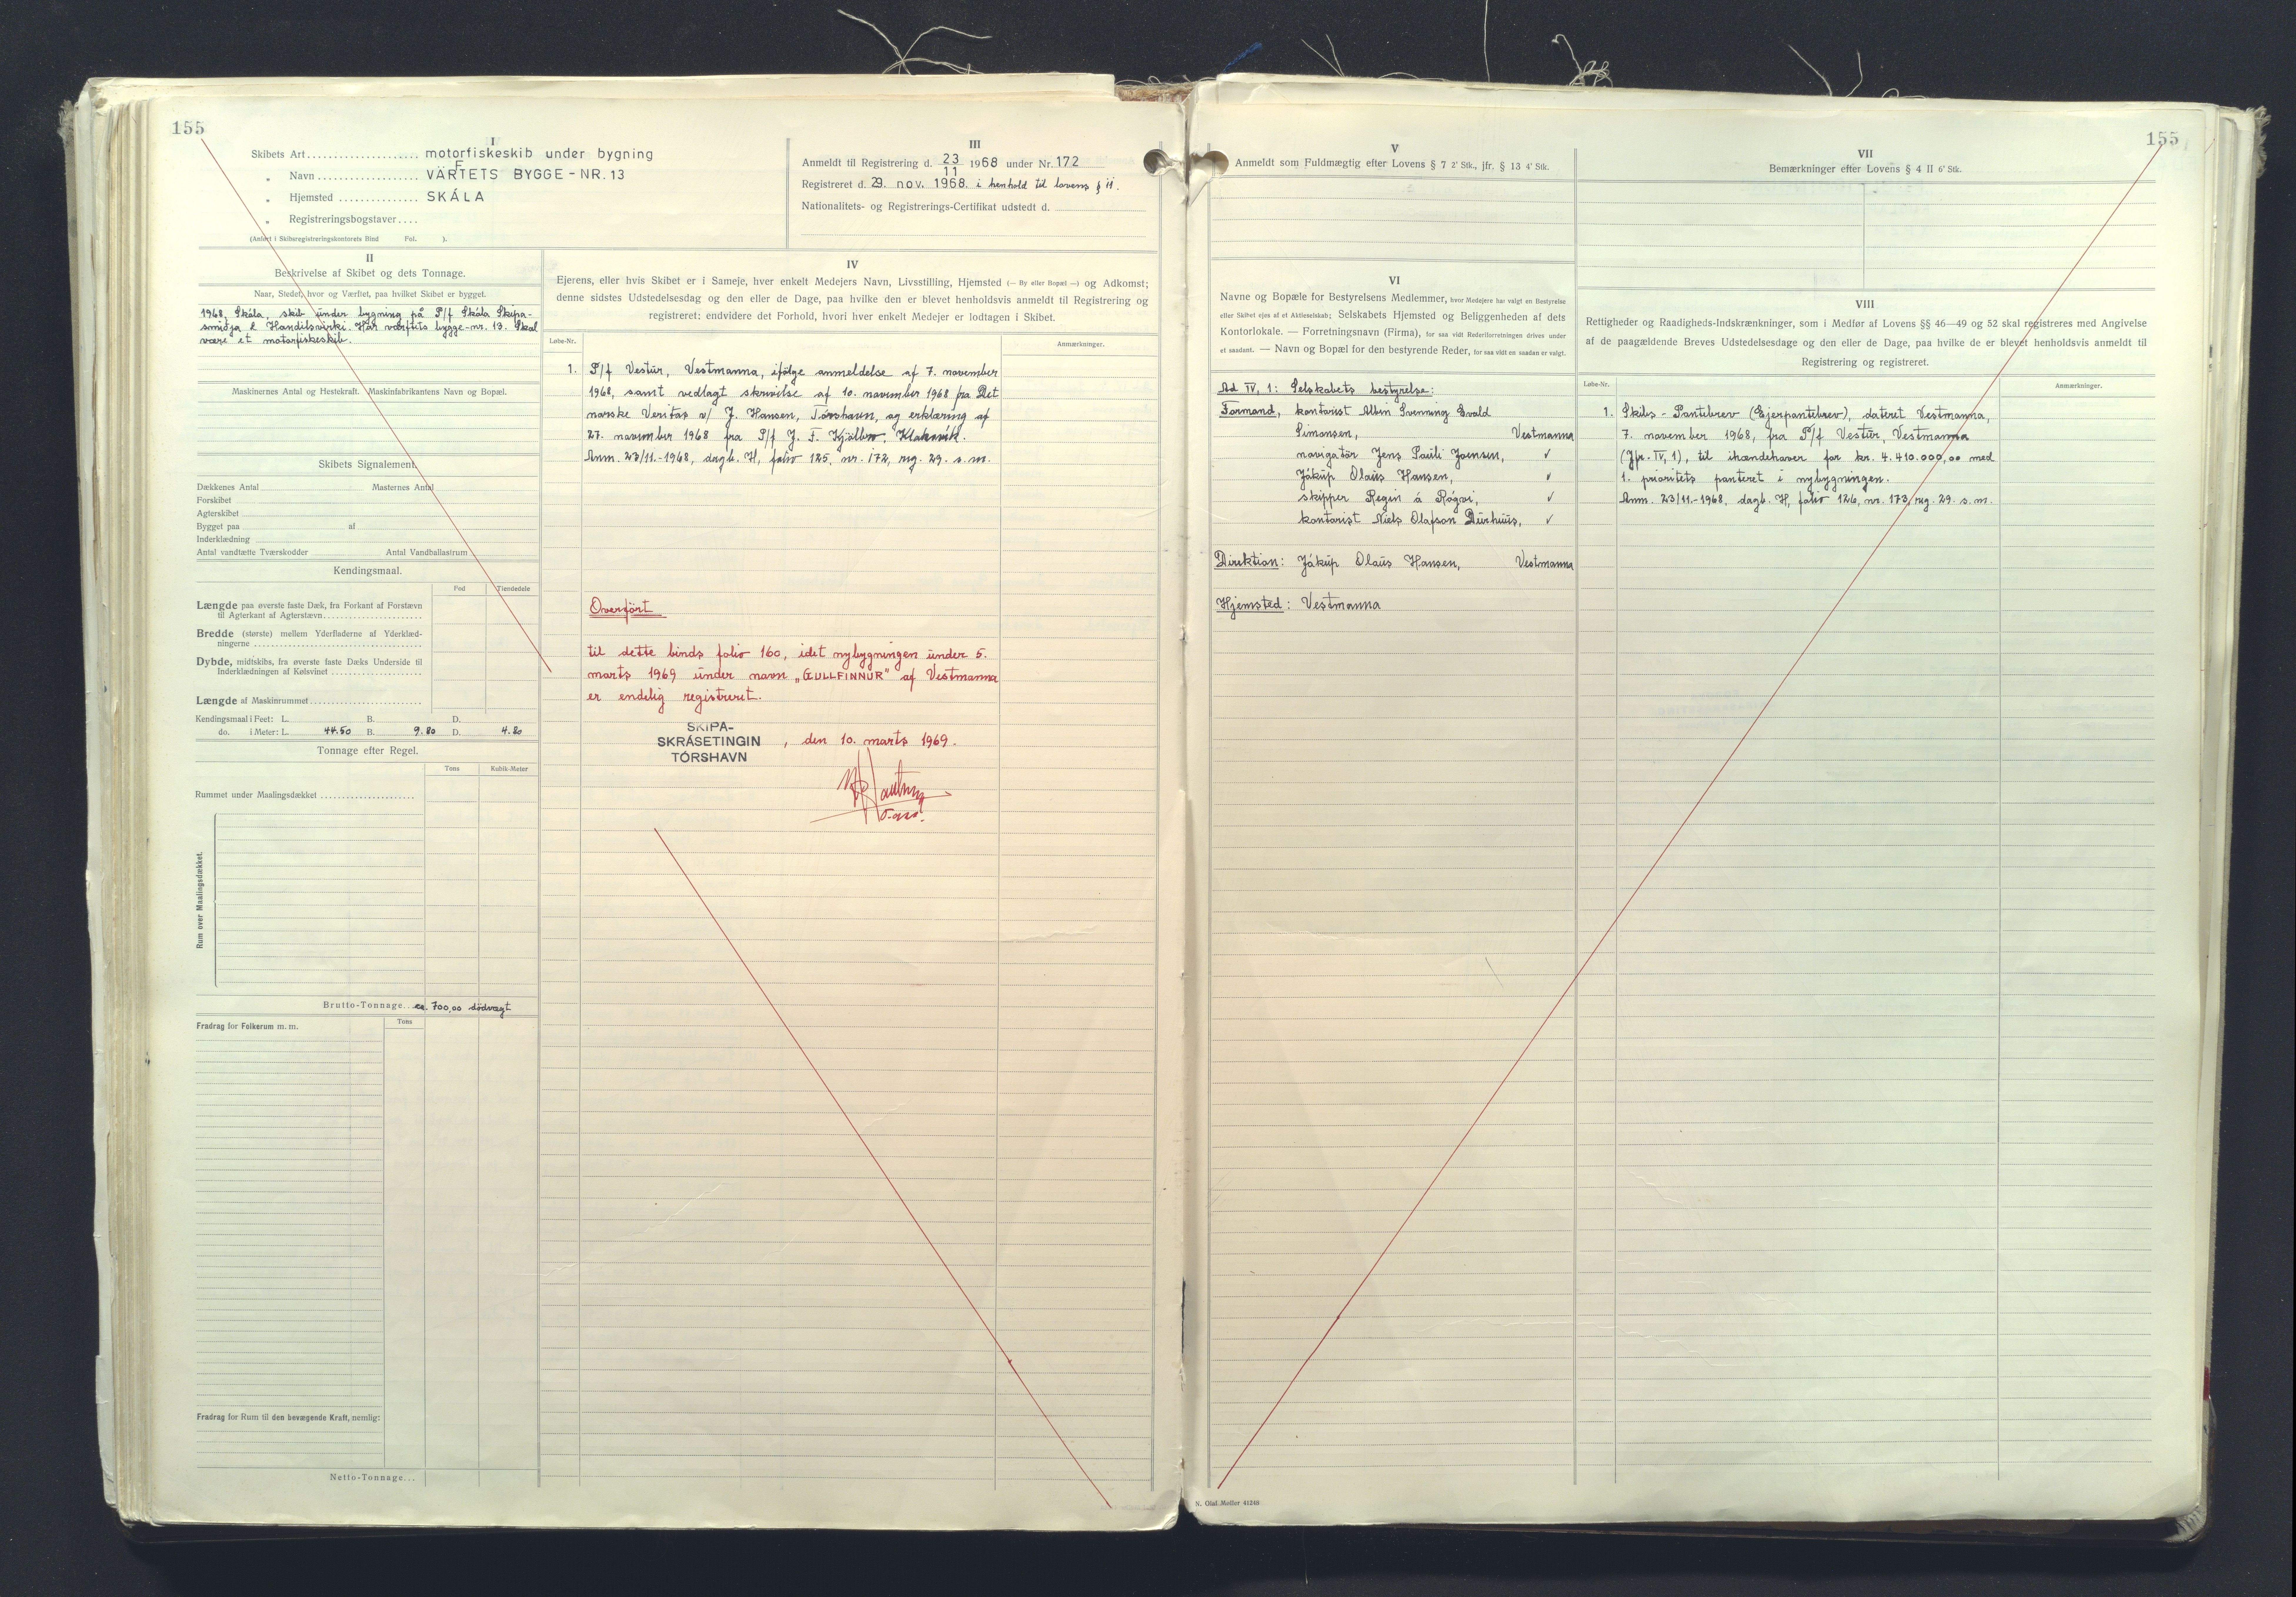 155
I
Skibets Art .................... motorfiskeskib under bygning
„ Navn .................... VÄRFTETS BYGGE-NR. 13
„ Hjemsted ............... SKÁLA
„ Registreringsbogstaver ....
(Anført i Skibsregistreringskontorets Bind Fol. ).
III
Anmeldt til Registrering d. 23/11 1968 under Nr. 172
Registreret d. 29. nov. 1968. i henhold til lovens § 11.
Nationalitets- og Registrerings-Certifikat udstedt d.
II
Beskrivelse af Skibet og dets Tonnage.
Naar, Stedet, hvor og Værftet, paa hvilket Skibet er bygget.
1968, Skála, skib under bygning på P/f Skála Skipa-
smiðja & Handilsvirki. Har værftets bygge-nr. 13. Skal
være et motorfiskeskib.
Maskinernes Antal og Hestekraft. Maskinfabrikantens Navn og Bopæl.
Skibets Signalement.
Dækkenes Antal Masternes Antal
Forskibet
Agterskibet
Bygget paa af
Inderklædning
Antal vandtætte Tværskodder Antal Vandballastrum
Kendingsmaal.
Fod Tiendedele
Længde paa øverste faste Dæk, fra Forkant af Forstævn
til Agterkant af Agterstævn
Bredde (største) mellem Yderfladerne af Yderklæd-
ningerne
Dybde, midtskibs, fra øverste faste Dæks Underside til
Inderklædningen af Kølsvinet
Længde af Maskinrummet
Kendingsmaal i Feet: L. B. D.
do. i Meter: L. 44.50 B. 9.80 D. 4.80
Tonnage efter Regel.
Tons Kubik-Meter
Rummet under Maalingsdækket
Rum over Maalingsdækket.
Brutto-Tonnage... ca. 700,00 dödvægt
Fradrag for Folkerum m. m. Tons
Fradrag for Rum til den bevægende Kraft, nemlig:
Netto-Tonnage...
IV
Ejerens, eller hvis Skibet er i Sameje, hver enkelt Medejers Navn, Livsstilling, Hjemsted (— By eller Bopæl —) og Adkomst;
denne sidstes Udstedelsesdag og den eller de Dage, paa hvilke den er blevet henholdsvis anmeldt til Registrering og
registreret: endvidere det Forhold, hvori hver enkelt Medejer er lodtagen i Skibet.
Løbe-Nr. Anmærkninger.
1. P/f Vestur, Vestmanna, ifölge anmeldelse af 7. november
1968, samt vedlagt skrivelse af 10. november 1968 fra Det
norske Veritas v/ J. Hansen, Tórshavn, og erklæring af
27. november 1968 fra P/f J. F. Kjölbro, Klaksvík.
Anm. 23/11.-1968, dagb. H, folio 125, nr. 172, reg. 29. s.m.
Overfört
til dette binds folio 160, idet nybygningen under 5.
marts 1969 under navn „GULLFINNUR" af Vestmanna
er endelig registreret.
SKIPA-
SKRÁSETINGIN
TÓRSHAVN
, den 10. marts 1969.
155
V
Anmeldt som Fuldmægtig efter Lovens § 7 2' Stk., jfr. § 13 4' Stk.
VI
Navne og Bopæle for Bestyrelsens Medlemmer, hvor Medejere har valgt en Bestyrelse
eller Skibet ejes af et Aktieselskab; Selskabets Hjemsted og Beliggenheden af dets
Kontorlokale. — Forretningsnavn (Firma), for saa vidt Rederiforretningen drives under
et saadant. — Navn og Bopæl for den bestyrende Reder, for saa vidt en saadan er valgt.
Ad IV, 1: Selskabets bestyrelse:
Formand, kontorist Albin Svenning Evald
Simonsen, Vestmanna
navigatör Jens Pauli Joensen, "
Jákup Olaus Hansen, "
skipper Regin á Rógvi, "
kontorist Niels Olafson Durhuus, "
Direktion: Jákup Olaus Hansen, Vestmanna
Hjemsted: Vestmanna
VII
Bemærkninger efter Lovens § 4 II 6' Stk.
VIII
Rettigheder og Raadigheds-Indskrænkninger, som i Medfør af Lovens §§ 46—49 og 52 skal registreres med Angivelse
af de paagældende Breves Udstedelsesdage og den eller de Dage, paa hvilke de er blevet henholdsvis anmeldt til
Registrering og registreret.
Løbe-Nr. Anmærkninger.
1. Skibs-Pantebrev (Ejerpantebrev), dateret Vestmanna,
7. november 1968, fra P/f Vestur, Vestmanna
(Jfr. IV, 1), til ihændehaver for kr. 4.410.000,00 med
1. prioritets panteret i nybygningen.
Anm. 23/11.-1968, dagb. H, folio 126, nr. 173, reg. 29. s.m.
N. Olaf Møller 41248